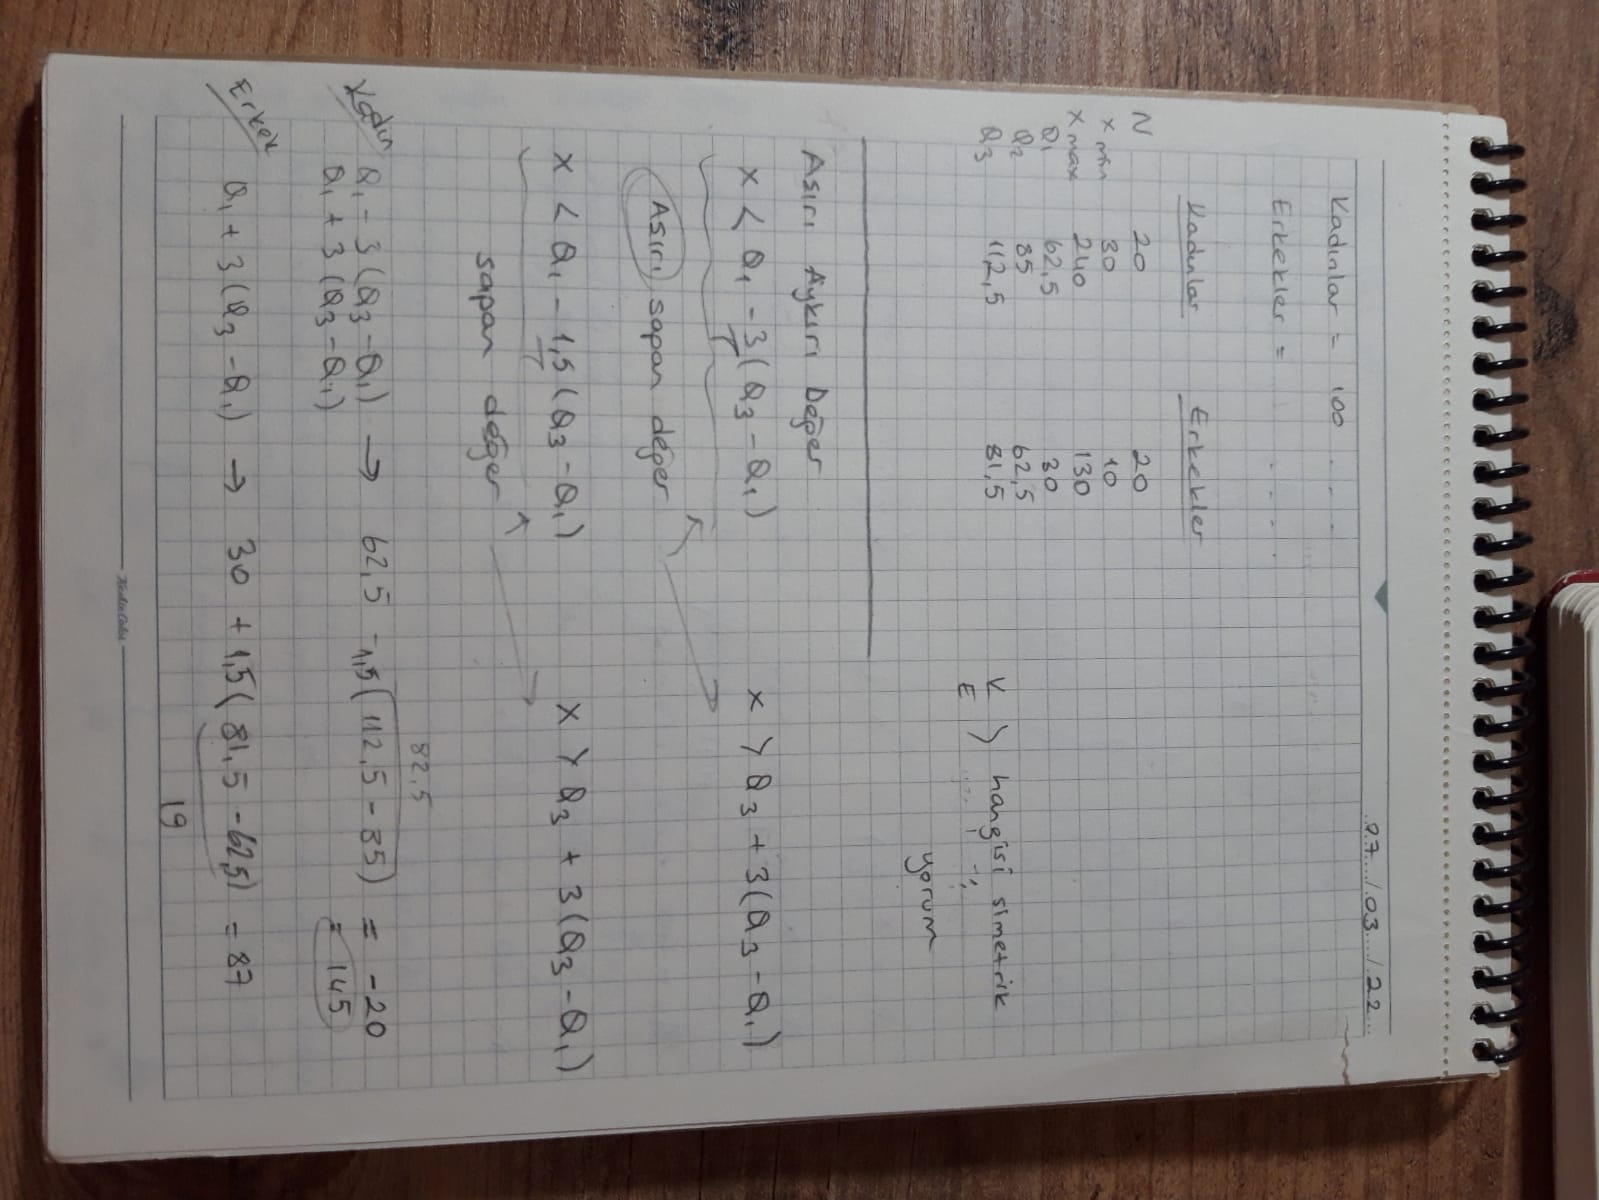 07/03/22
Kadınlar = 100 . . . .
Erkekler = . . . .
Kadınlar Erkekler
N 20 20
x min 30 10
x max 240 130
Q1 62,5 30
Q2 85 62,5
Q3 112,5 81,5
K
E > hangisi simetrik
yorum
Asırı Aykırı Değer
x < Q1 - 3(Q3 - Q1) x > Q3 + 3(Q3 - Q1)
Asırı sapan değer
x < Q1 - 1,5(Q3 - Q1) x > Q3 + 3(Q3 - Q1)
sapan değer
82,5
Kadın Q1 - 3(Q3 - Q1) → 62,5 - 1,5(112,5 - 85) = -20
Q1 + 3(Q3 - Q1) = 145
Erkek Q1 + 3(Q3 - Q1) → 30 + 1,5(81,5 - 62,5) = 87
19